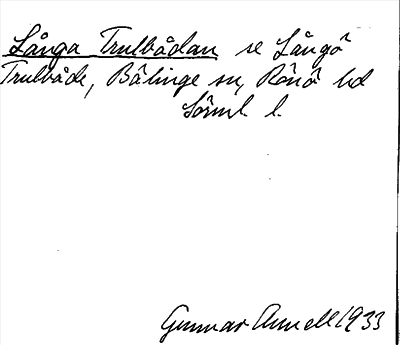 Långa Trulbådan se Långö
Trulbåde, Bälinge sn, Rönö hd
Sörml. l.
Gunnar Annell 1933